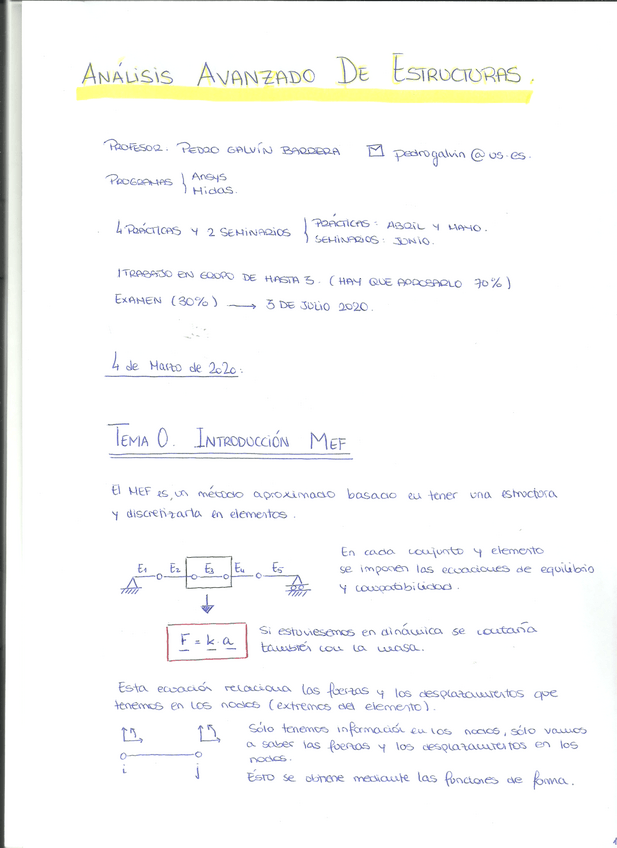 ANÁLISIS AVANZADO DE ESTRUCTURAS.
PROFESOR. PEDRO GALVÍN BARRERA pedrogalvin@us.es.
PROGRAMAS Ansys
Midas.
4 PRÁCTICAS Y 2 SEMINARIOS PRÁCTICAS: ABRIL Y MAYO.
SEMINARIOS: JUNIO.
1 TRABAJO EN EQUIPO DE HASTA 3. (HAY QUE APROBARLO 70%)
EXAMEN (30%) → 3 DE JULIO 2020.
4 de Marzo de 2020.
TEMA 0. INTRODUCCIÓN MEF
El MEF es, un método aproximado basado en tener una estructura
y discretizarla en elementos.
En cada conjunto y elemento
se imponen las ecuaciones de equilibrio
y compatibilidad.
E1 E2 E3 E4 E5
F = k · a
Si estuviesemos en dinámica se contaría
también con la masa.
Esta ecuación relaciona las fuerzas y los desplazamientos que
tenemos en los nodos (extremos del elemento).
Sólo tenemos información en los nodos, sólo vamos
a saber las fuerzas y los desplazamientos en los
nodos.
i j
Ésto se obtiene mediante las funciones de forma.